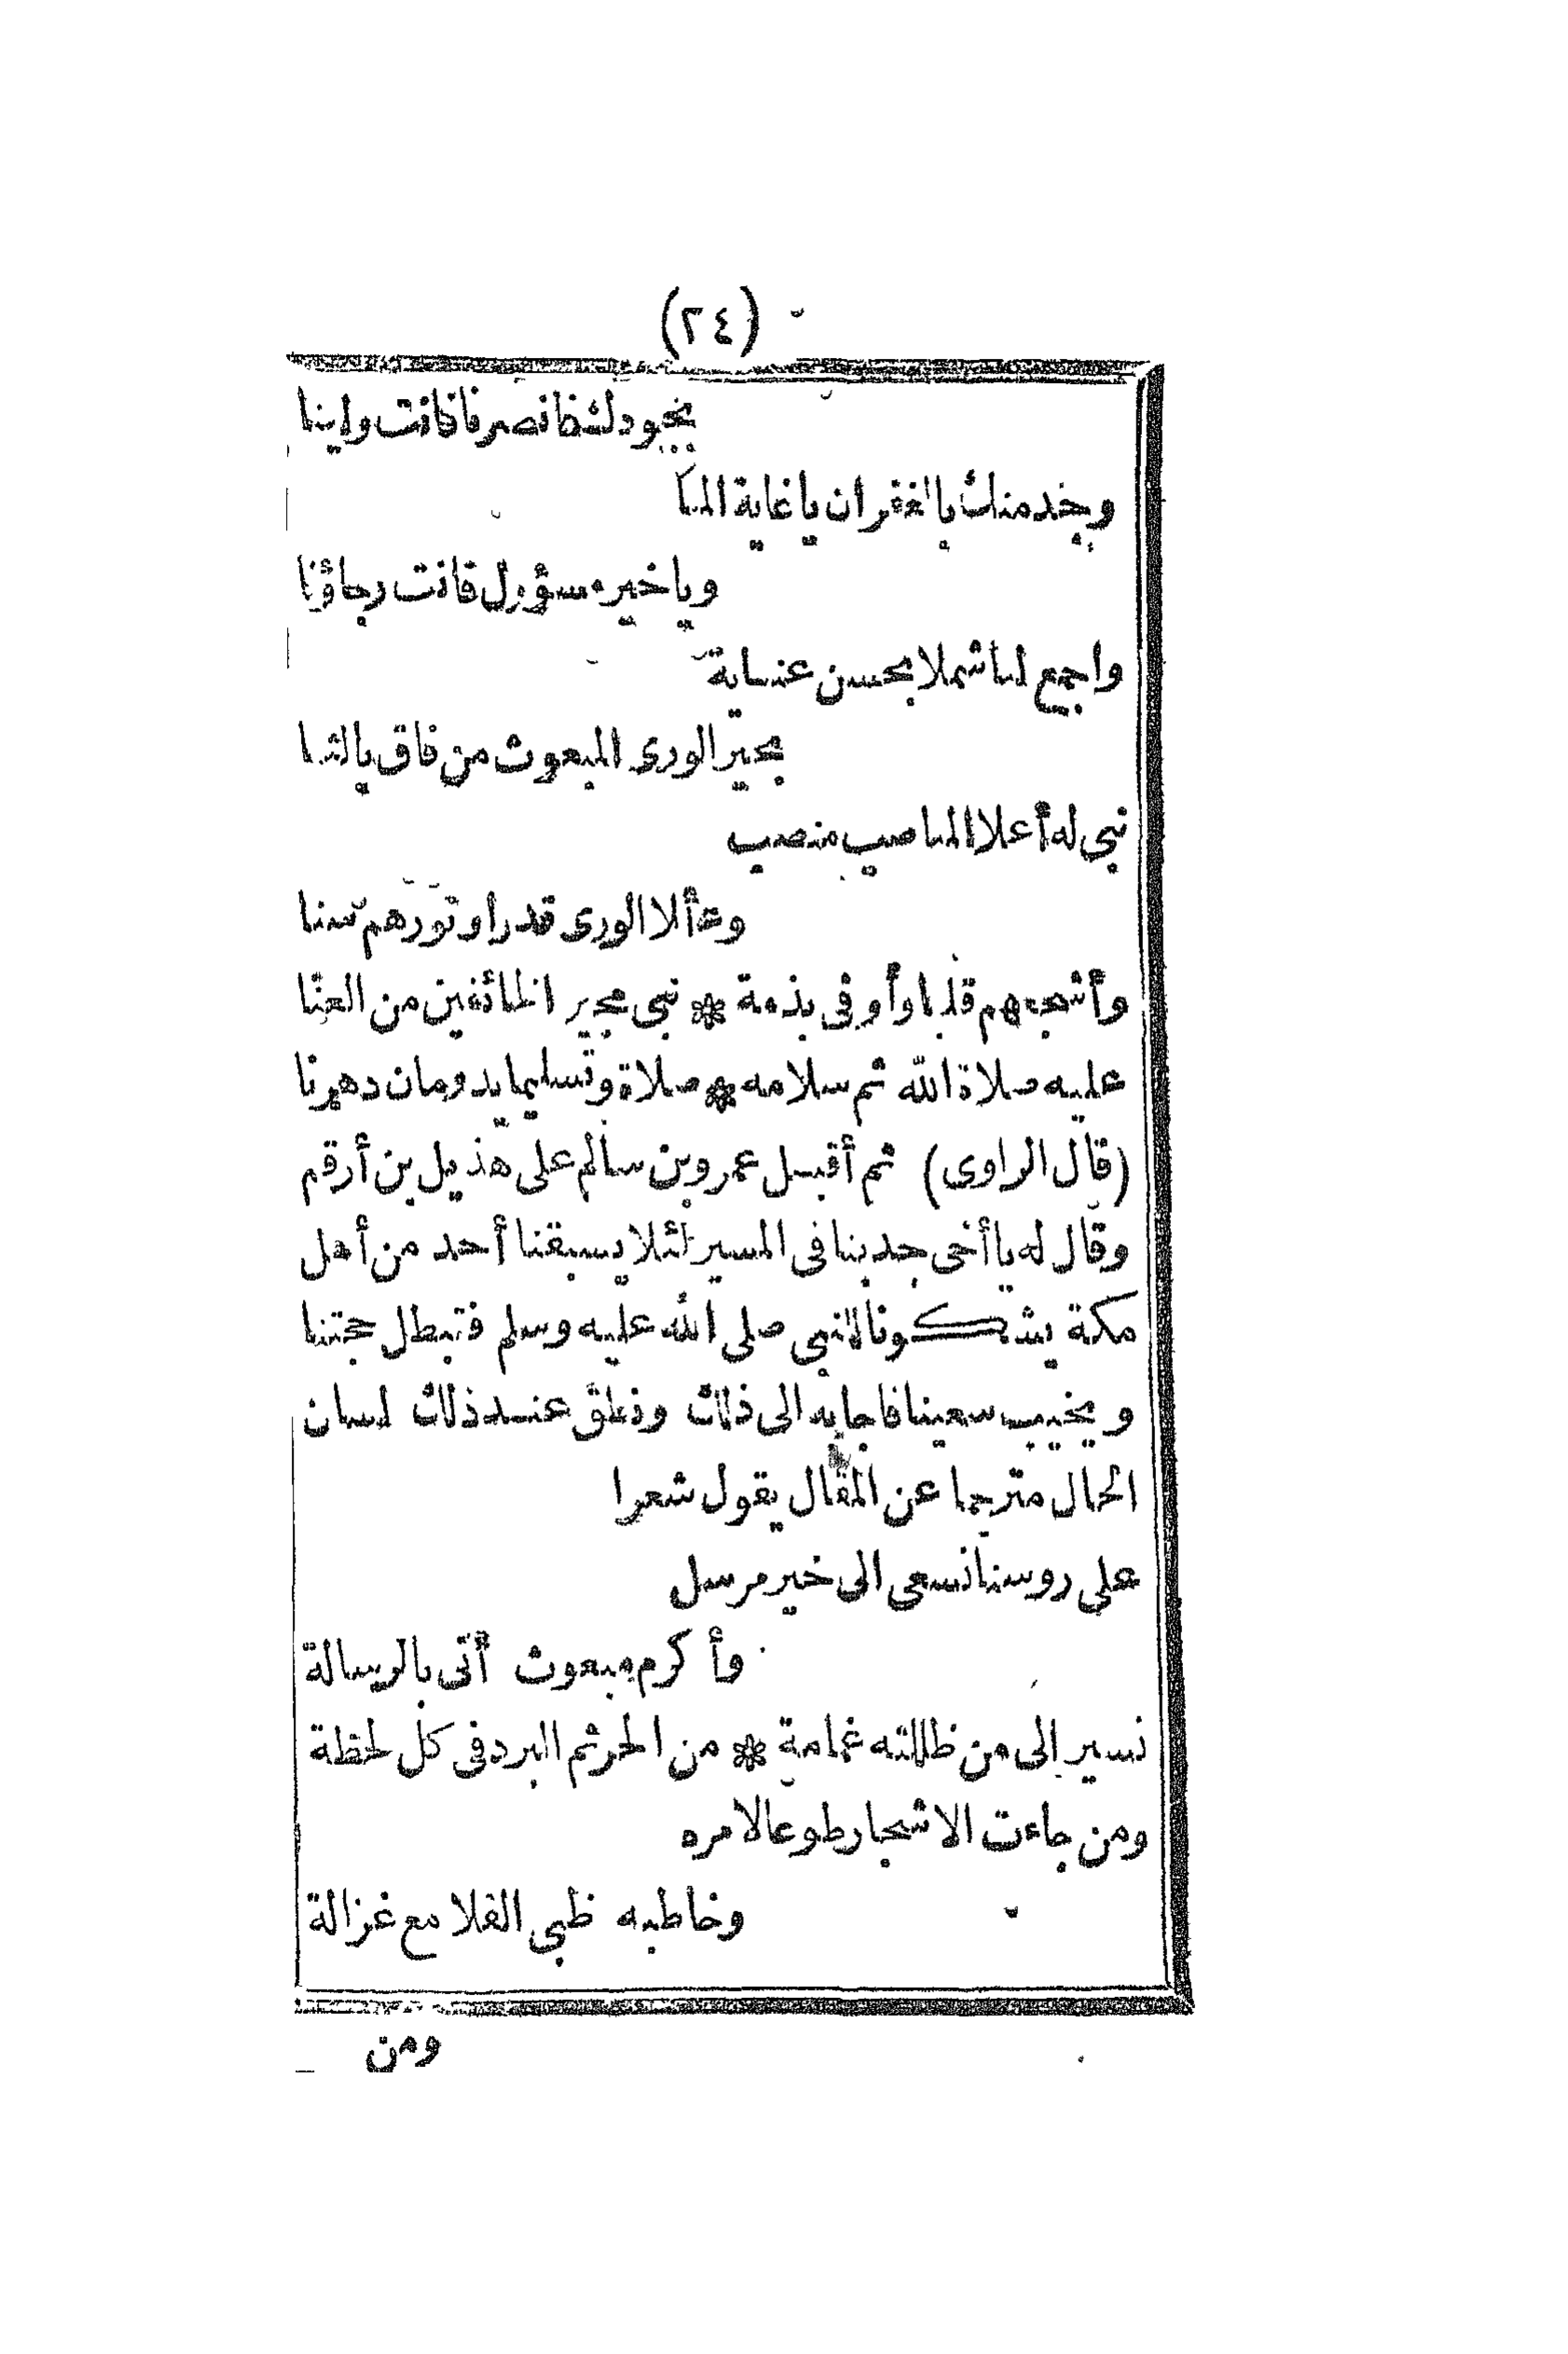 (٢٤)
بجودك فانصرنا فانت ولينا
وجد منك بالغفران يا غاية المنا
ويا خير مسؤول فانت رجاؤنا
واجمع لنا شملا بحسن عناية
بخير الورى المبعوث من فاق بالثنا
نبى له أعلا المناصب منصب
وعألا الورى قدرا ونورهم سنا
وأشجعهم قلبا وأوفى بذمة * نبى مجير الخائفين من العنا
عليه صلاة الله ثم سلامه * صلاة وتسليما يدومان دهرنا
(قال الراوى) ثم أقبل عمرو بن سالم على هذيل بن أرقم
وقال له يا أخى جد بنا فى المسير لئلا يسبقنا أحد من أهل
مكة يشكونا للنبى صلى الله عليه وسلم فتبطل حجتنا
ويخيب سعينا فاجابه الى ذلك ونطق عند ذلك لسان
الحال مترجما عن المقال يقول شعرا
على روسنا نسعى الى خير مرسل
وأكرم مبعوث أتى بالرسالة
نسير إلى من ظللته غمامة * من الحر ثم البرد فى كل لحظة
ومن جاءت الاشجار طوعا لامره
وخاطبه ظبى الفلا مع غزالة
ومن